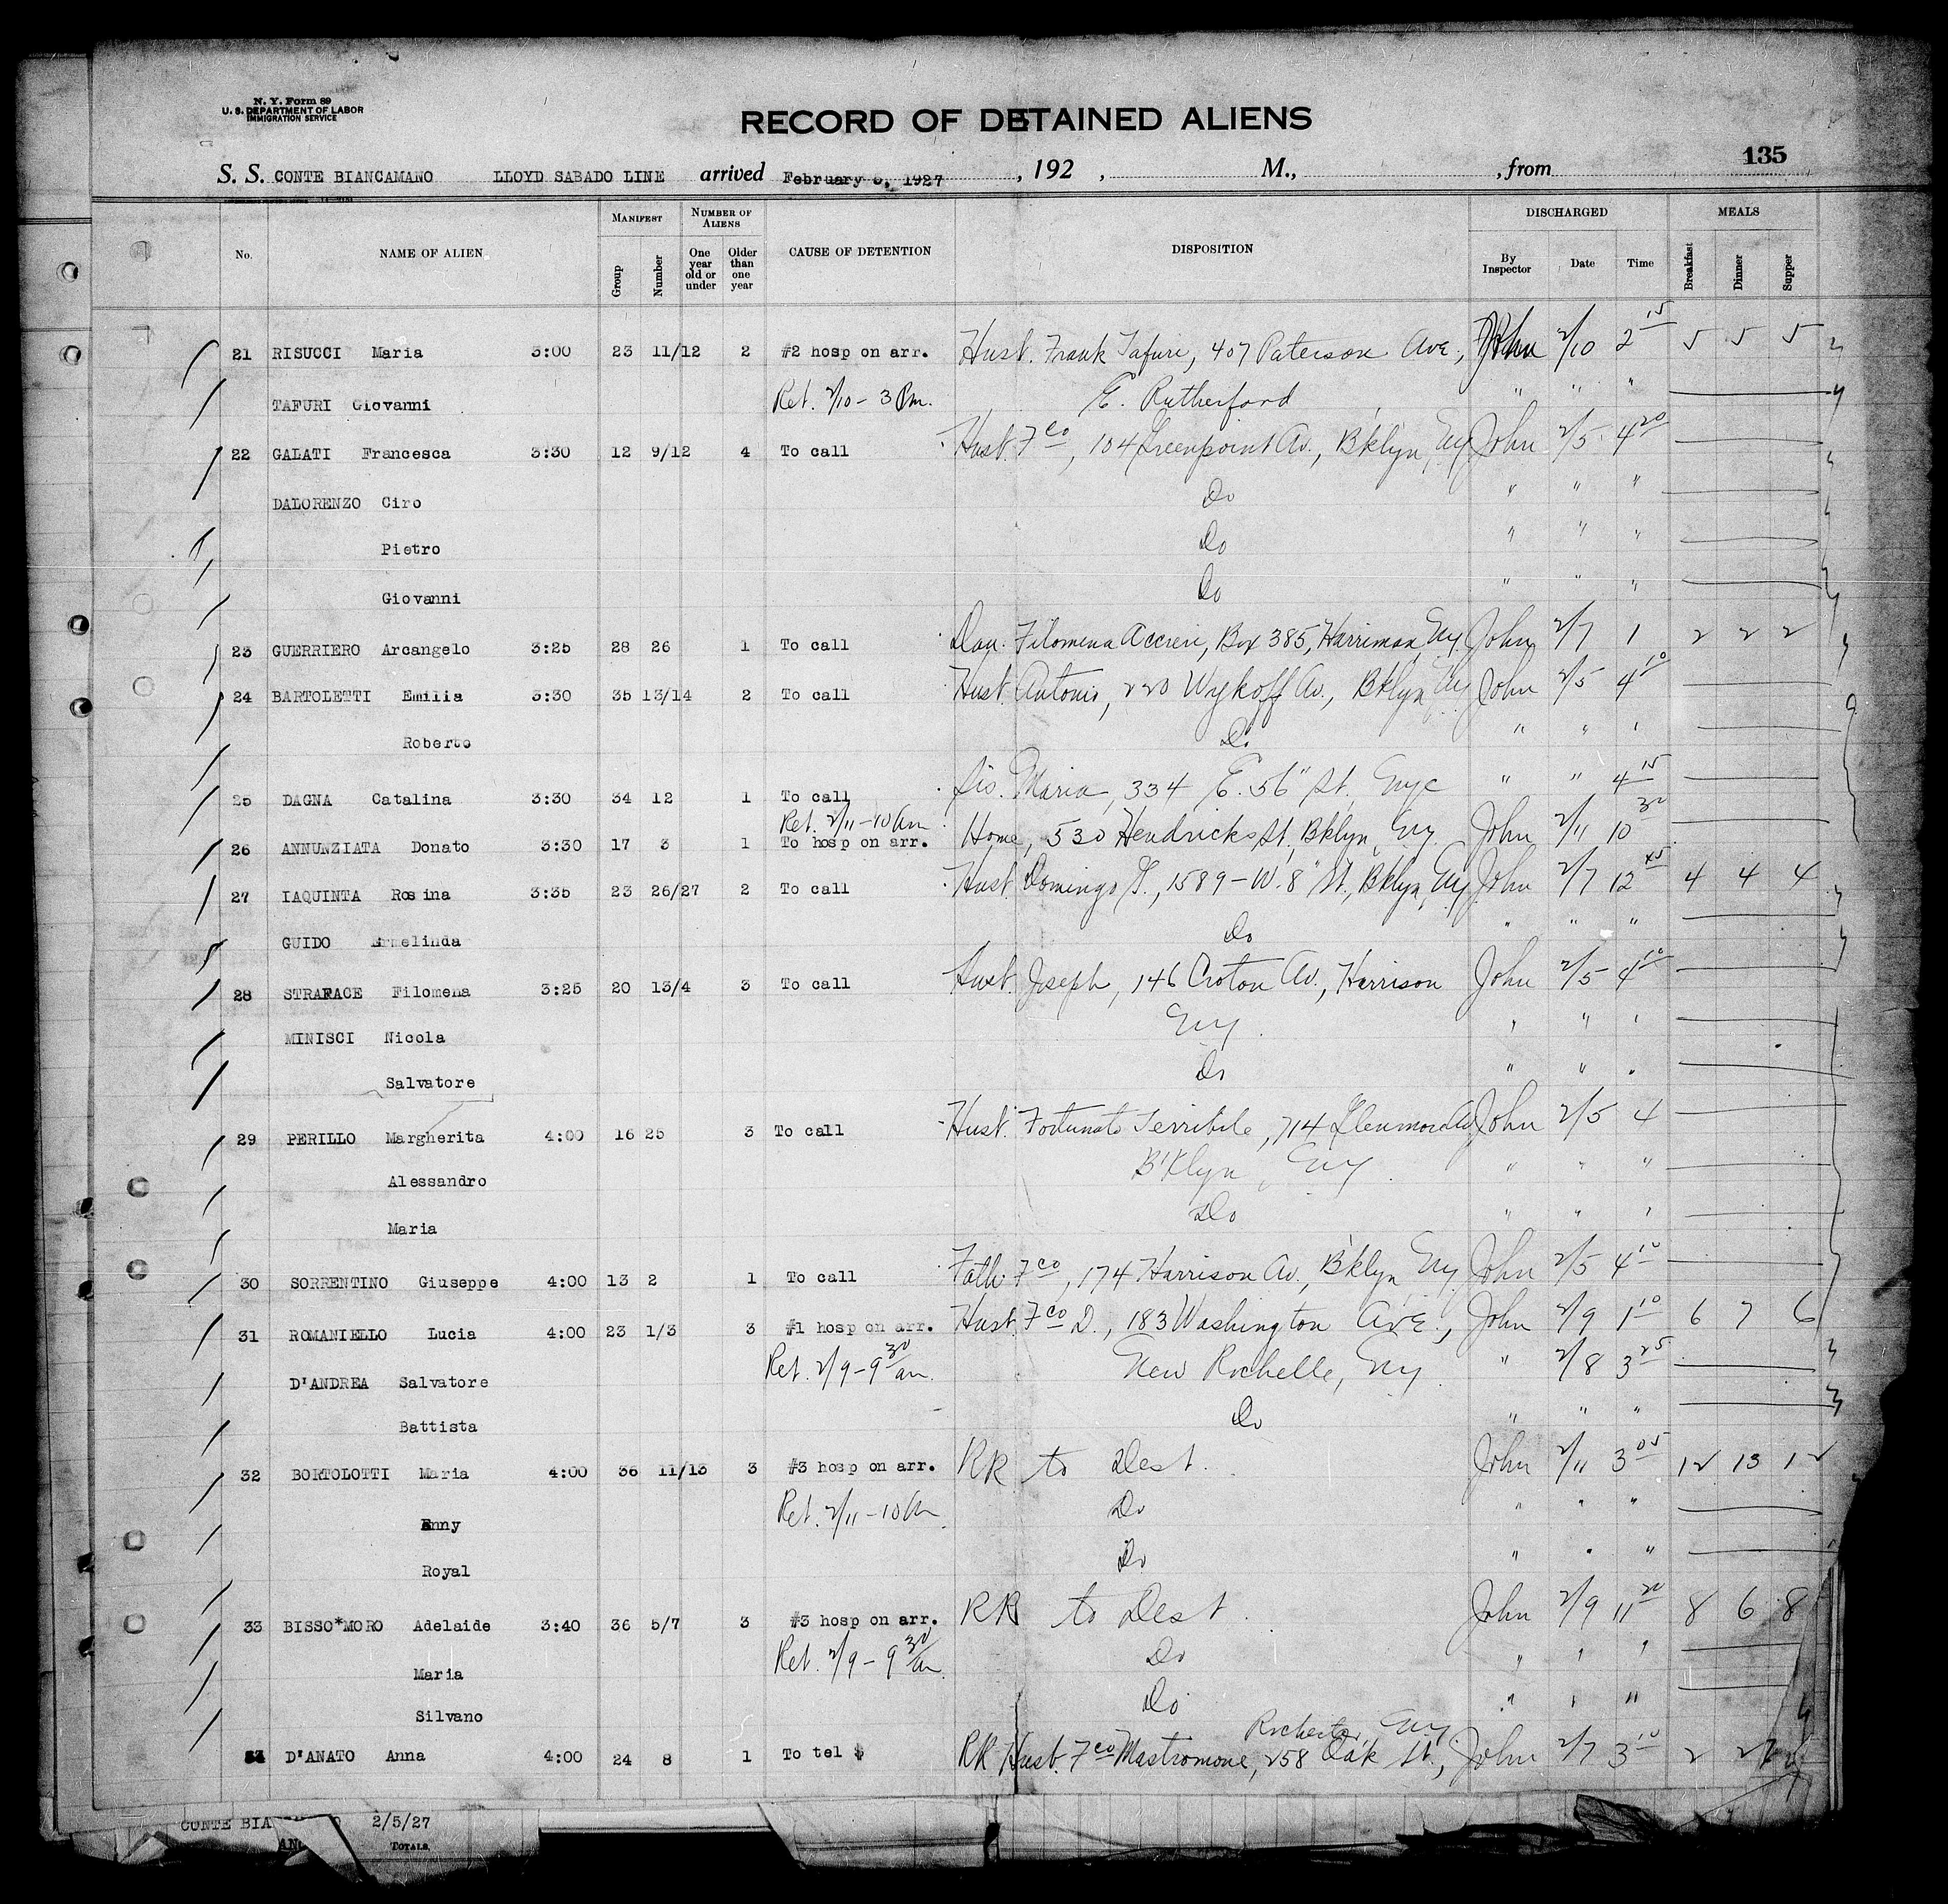 N. Y. Form 89
U. S. DEPARTMENT OF LABOR
IMMIGRATION SERVICE
RECORD OF DETAINED ALIENS
135
S. S. CONTE BIANCAMANO LLOYD SABADO LINE arrived February 5, 1927, 192 , M., , from
MANIFEST NUMBER OF ALIENS DISCHARGED MEALS
No. NAME OF ALIEN Group Number One year old or under Older than one year CAUSE OF DETENTION DISPOSITION By Inspector Date Time Breakfast Dinner Supper
21 RISUCCI Maria 3:00 23 11/12 2 #2 hosp on arr. Hust. Frank Tafuri, 407 Paterson Ave., John 2/10 2 15 5 5 5
TAFURI Giovanni Ret. 2/10 - 3 Pm. E. Rutherford " " "
22 GALATI Francesca 3:30 12 9/12 4 To call Hust. Fco, 104 Greenpoint Av., Bklyn, Ny John 2/5 4 20
DALORENZO Ciro Do " " "
Pietro Do " " "
Giovanni Do " " "
23 GUERRIERO Arcangelo 3:25 28 26 1 To call Dau. Filomena Accrere, Box 385, Harriman, Ny John 2/7 1 2 2 2
24 BARTOLETTI Emilia 3:30 35 13/14 2 To call Hust. Antonio, 220 Wykoff Av., Bklyn, Ny John 2/5 4 10
Roberto Do " " "
25 DAGNA Catalina 3:30 34 12 1 To call Sis. Maria, 334 E. 56" St. Nyc " " 4 15
Ret. 2/11 - 10 am
26 ANNUNZIATA Donato 3:30 17 3 1 To hosp on arr. Home, 530 Hendricks St, Bklyn, Ny John 2/11 10 30
27 IAQUINTA Rosina 3:35 23 26/27 2 To call Hust. Domingo G., 1589 - W. 8" St., Bklyn, Ny John 2/7 12 45 4 4 4
GUIDO Ermelinda Do " " "
28 STRAFACE Filomena 3:25 20 13/4 3 To call Hust. Joseph, 146 Croton Av., Harrison John 2/5 4 10
MINISCI Nicola Ny. " " "
Salvatore Do " " "
29 PERILLO Margherita 4:00 16 25 3 To call Hust. Fortunato Terribile, 714 Glenmore Av John 2/5 4
Alessandro B'klyn, Ny. " " "
Maria Do " " "
30 SORRENTINO Giuseppe 4:00 13 2 1 To call Fath. Fco, 174 Harrison Av., Bklyn, Ny John 2/5 4 10
31 ROMANIELLO Lucia 4:00 23 1/3 3 #1 hosp on arr. Hust. Fco D., 183 Washington Ave., John 2/9 1 10 6 7 6
D'ANDREA Salvatore Ret. 2/9 - 9 30 am. New Rochelle, Ny. " 2/8 3 25
Battista Do " " "
32 BORTOLOTTI Maria 4:00 36 11/13 3 #3 hosp on arr. RR to Dest. John 2/11 3 05 12 13 12
Enny Ret. 2/11 - 10 Am Do " " "
Royal Do " " "
33 BISSO*MORO Adelaide 3:40 36 5/7 3 #3 hosp on arr. RR to Dest. John 2/9 11 20 8 6 8
Maria Ret. 2/9 - 9 30 am. Do " " "
Silvano Do " " "
Rochester, Ny
34 D'ANATO Anna 4:00 24 8 1 To tel $ RR Hust. Fco Mastromone, 258 Oak St., John 2/7 3 10 2 2 2
CONTE BIA 2/5/27
TOTALS